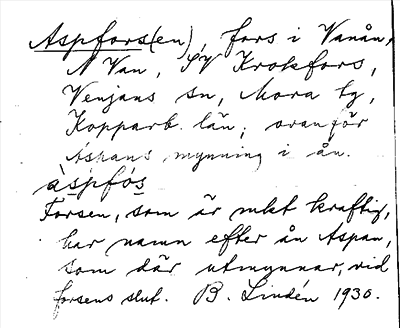 Aspfors(en), fors i Vanån,
N Van, SV Krokfors,
Venjans sn, Mora tg,
Kopparb. län, ovanför
Aspans mynning i ån.
àspfós
Forsen, som är mkt kraftig,
har namn efter ån Aspan,
som där utmynnar, vid
forsens slut. B. Lindén 1930.